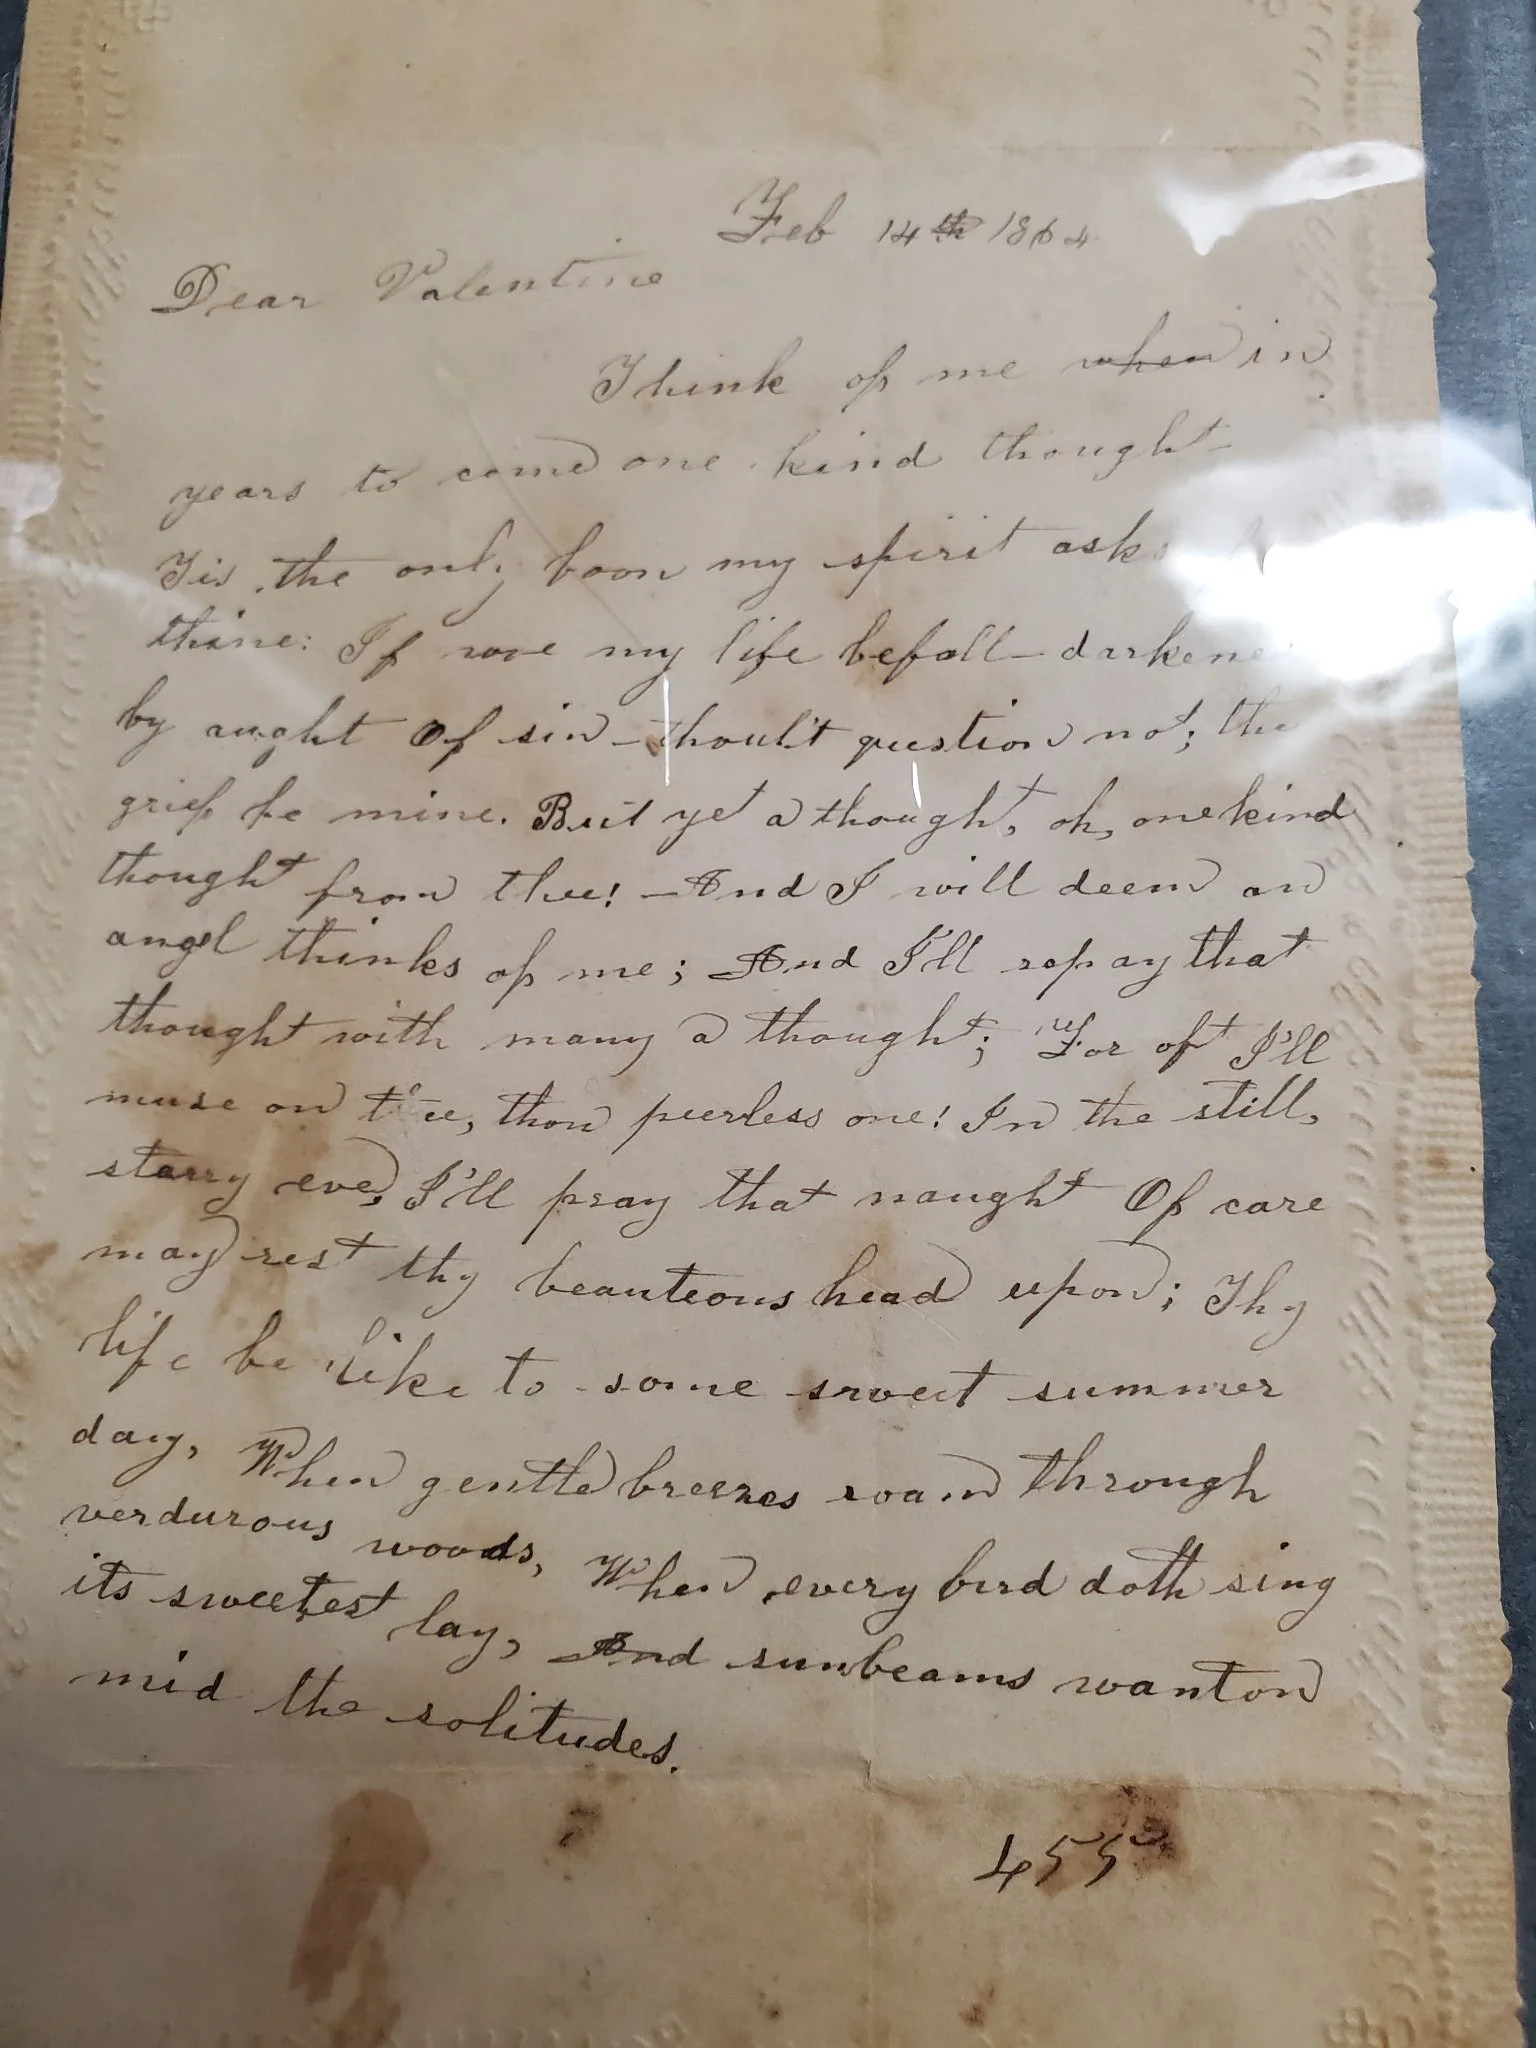 Feb 14th 1864
Dear Valentine
Think of me when in
years to come one kind thought-
Tis the only boon my spirit asks
thine: If woe my life befall- darkene
by aught Of sin - thoul't question not; the
grief be mine. But yet a thought, oh, one kind
thought from thee! - And I will deem an
angel thinks of me; And I'll repay that
thought with many a thought; For oft I'll
muse on thee, thou peerless one! In the still,
starry eve, I'll pray that naught Of care
may rest thy beauteous head upon; Thy
life be like to some sweet summer
day, When gentle breezes roam through
verdurous woods, When every bird doth sing
its sweetest lay, And sunbeams wanton
mid the solitudes.
455